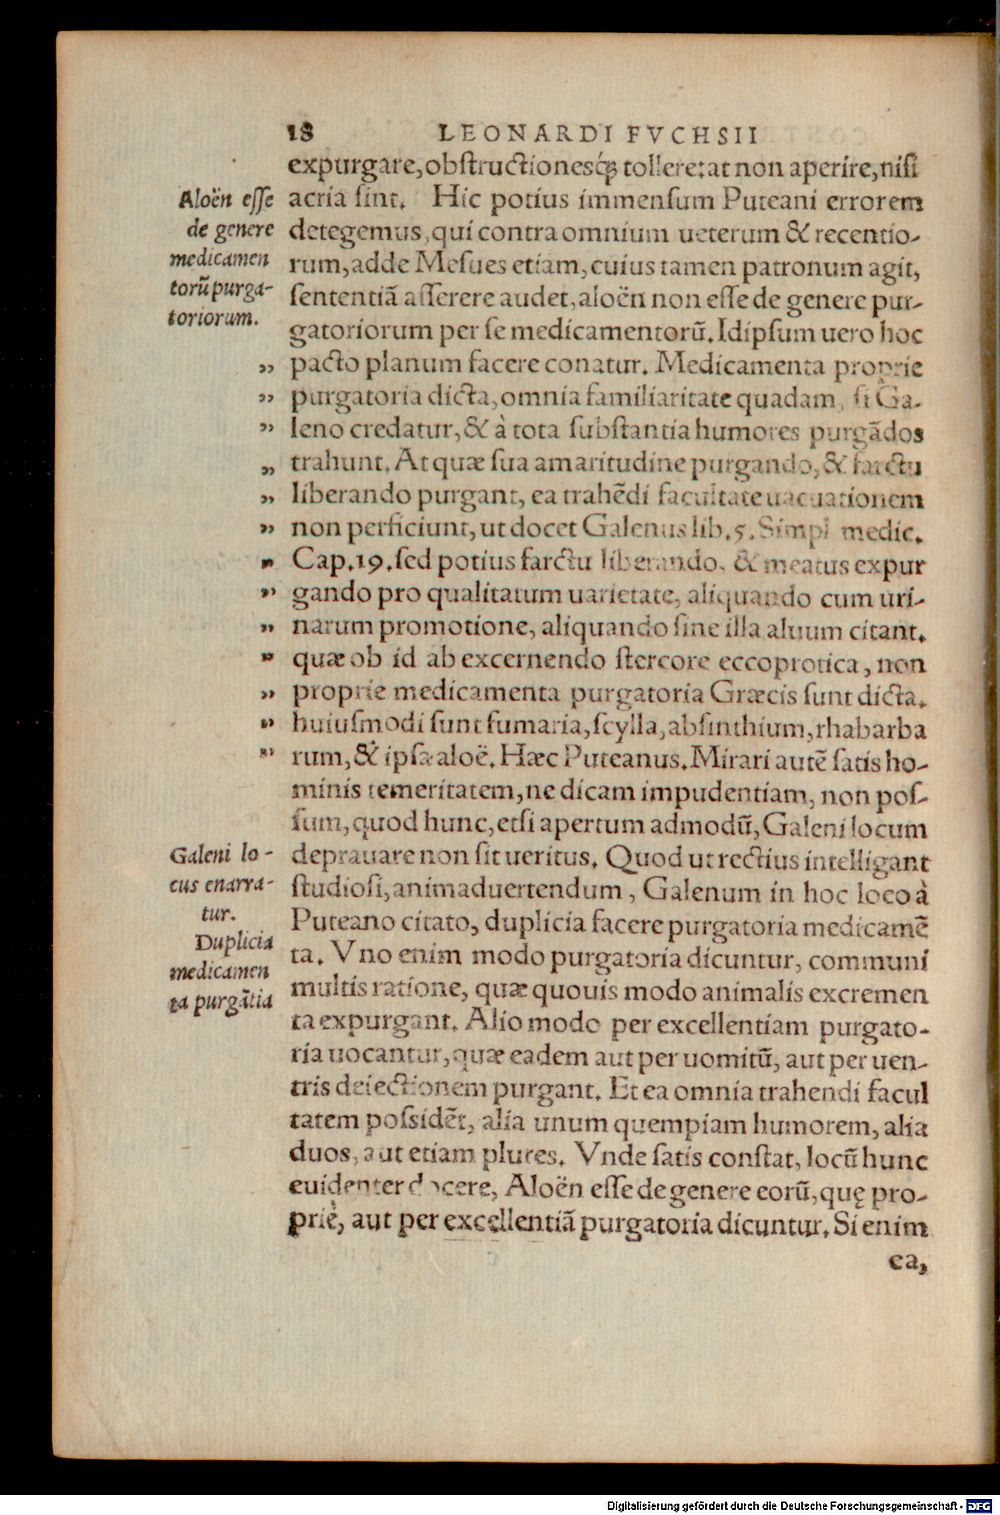 18 LEONARDI FVCHSII
expurgare, obſtructionesq́ꝫ tollere: at non aperire, niſi
acria ſint. Hic potius immenſum Puteani errorem
detegemus, qui contra omnium ueterum & recentio-
rum, adde Meſues etiam, cuius tamen patronum agit,
ſententiã aſſerere audet, aloën non eſſe de genere pur-
gatoriorum per ſe medicamentorũ. Idipſum uero hoc
pacto planum facere conatur. Medicamenta proprie
purgatoria dicta, omnia familiaritate quadam, ſi Ga-
leno credatur, & à tota ſubſtantia humores purgãdos
trahunt. At quæ ſua amaritudine purgando, & farctu
liberando purgant, ea trahẽdi facultate uacuationem
non perficiunt, ut docet Galenus lib. 5. Simpl medic.
Cap. 19. ſed potius farctu liberando, & meatus expur
gando pro qualitatum uarietate, aliquando cum uri-
narum promotione, aliquando ſine illa aluum citant.
quæ ob id ab excernendo ſtercore eccoprotica, non
proprie medicamenta purgatoria Græcis ſunt dicta.
huiuſmodi ſunt fumaria, ſcylla, abſinthium, rhabarba
rum, & ipſa aloë. Hæc Puteanus. Mirari autẽ ſatis ho-
minis temeritatem, ne dicam impudentiam, non poſ-
ſum, quod hunc, etſi apertum admodũ, Galeni locum
deprauare non ſit ueritus. Quod ut rectius intelligant
ſtudioſi, animaduertendum, Galenum in hoc loco à
Puteano citato, duplicia facere purgatoria medicamẽ
ta. Vno enim modo purgatoria dicuntur, communi
multis ratione, quæ quouis modo animalis excremen
ta expurgant. Alio modo per excellentiam purgato-
ria uocantur, quæ eadem aut per uomitũ, aut per uen-
tris deiectionem purgant. Et ea omnia trahendi facul
tatem poſsidẽt, alia unum quempiam humorem, alia
duos, aut etiam plures. Vnde ſatis conſtat, locũ hunc
euidenter docere, Aloën eſſe de genere eorũ, quę pro-
priè, aut per excellentiã purgatoria dicuntur. Si enim
ea,
Aloën eſſe
de genere
medicamen
torũ purga-
toriorum.
„
„
„
„
„
„
„
„
„
„
„
„
„
Galeni lo-
cus enarra-
tur.
Duplicia
medicamen
ta purgãtia
Digitalisierung gefördert durch die Deutsche Forschungsgemeinschaft - DFG